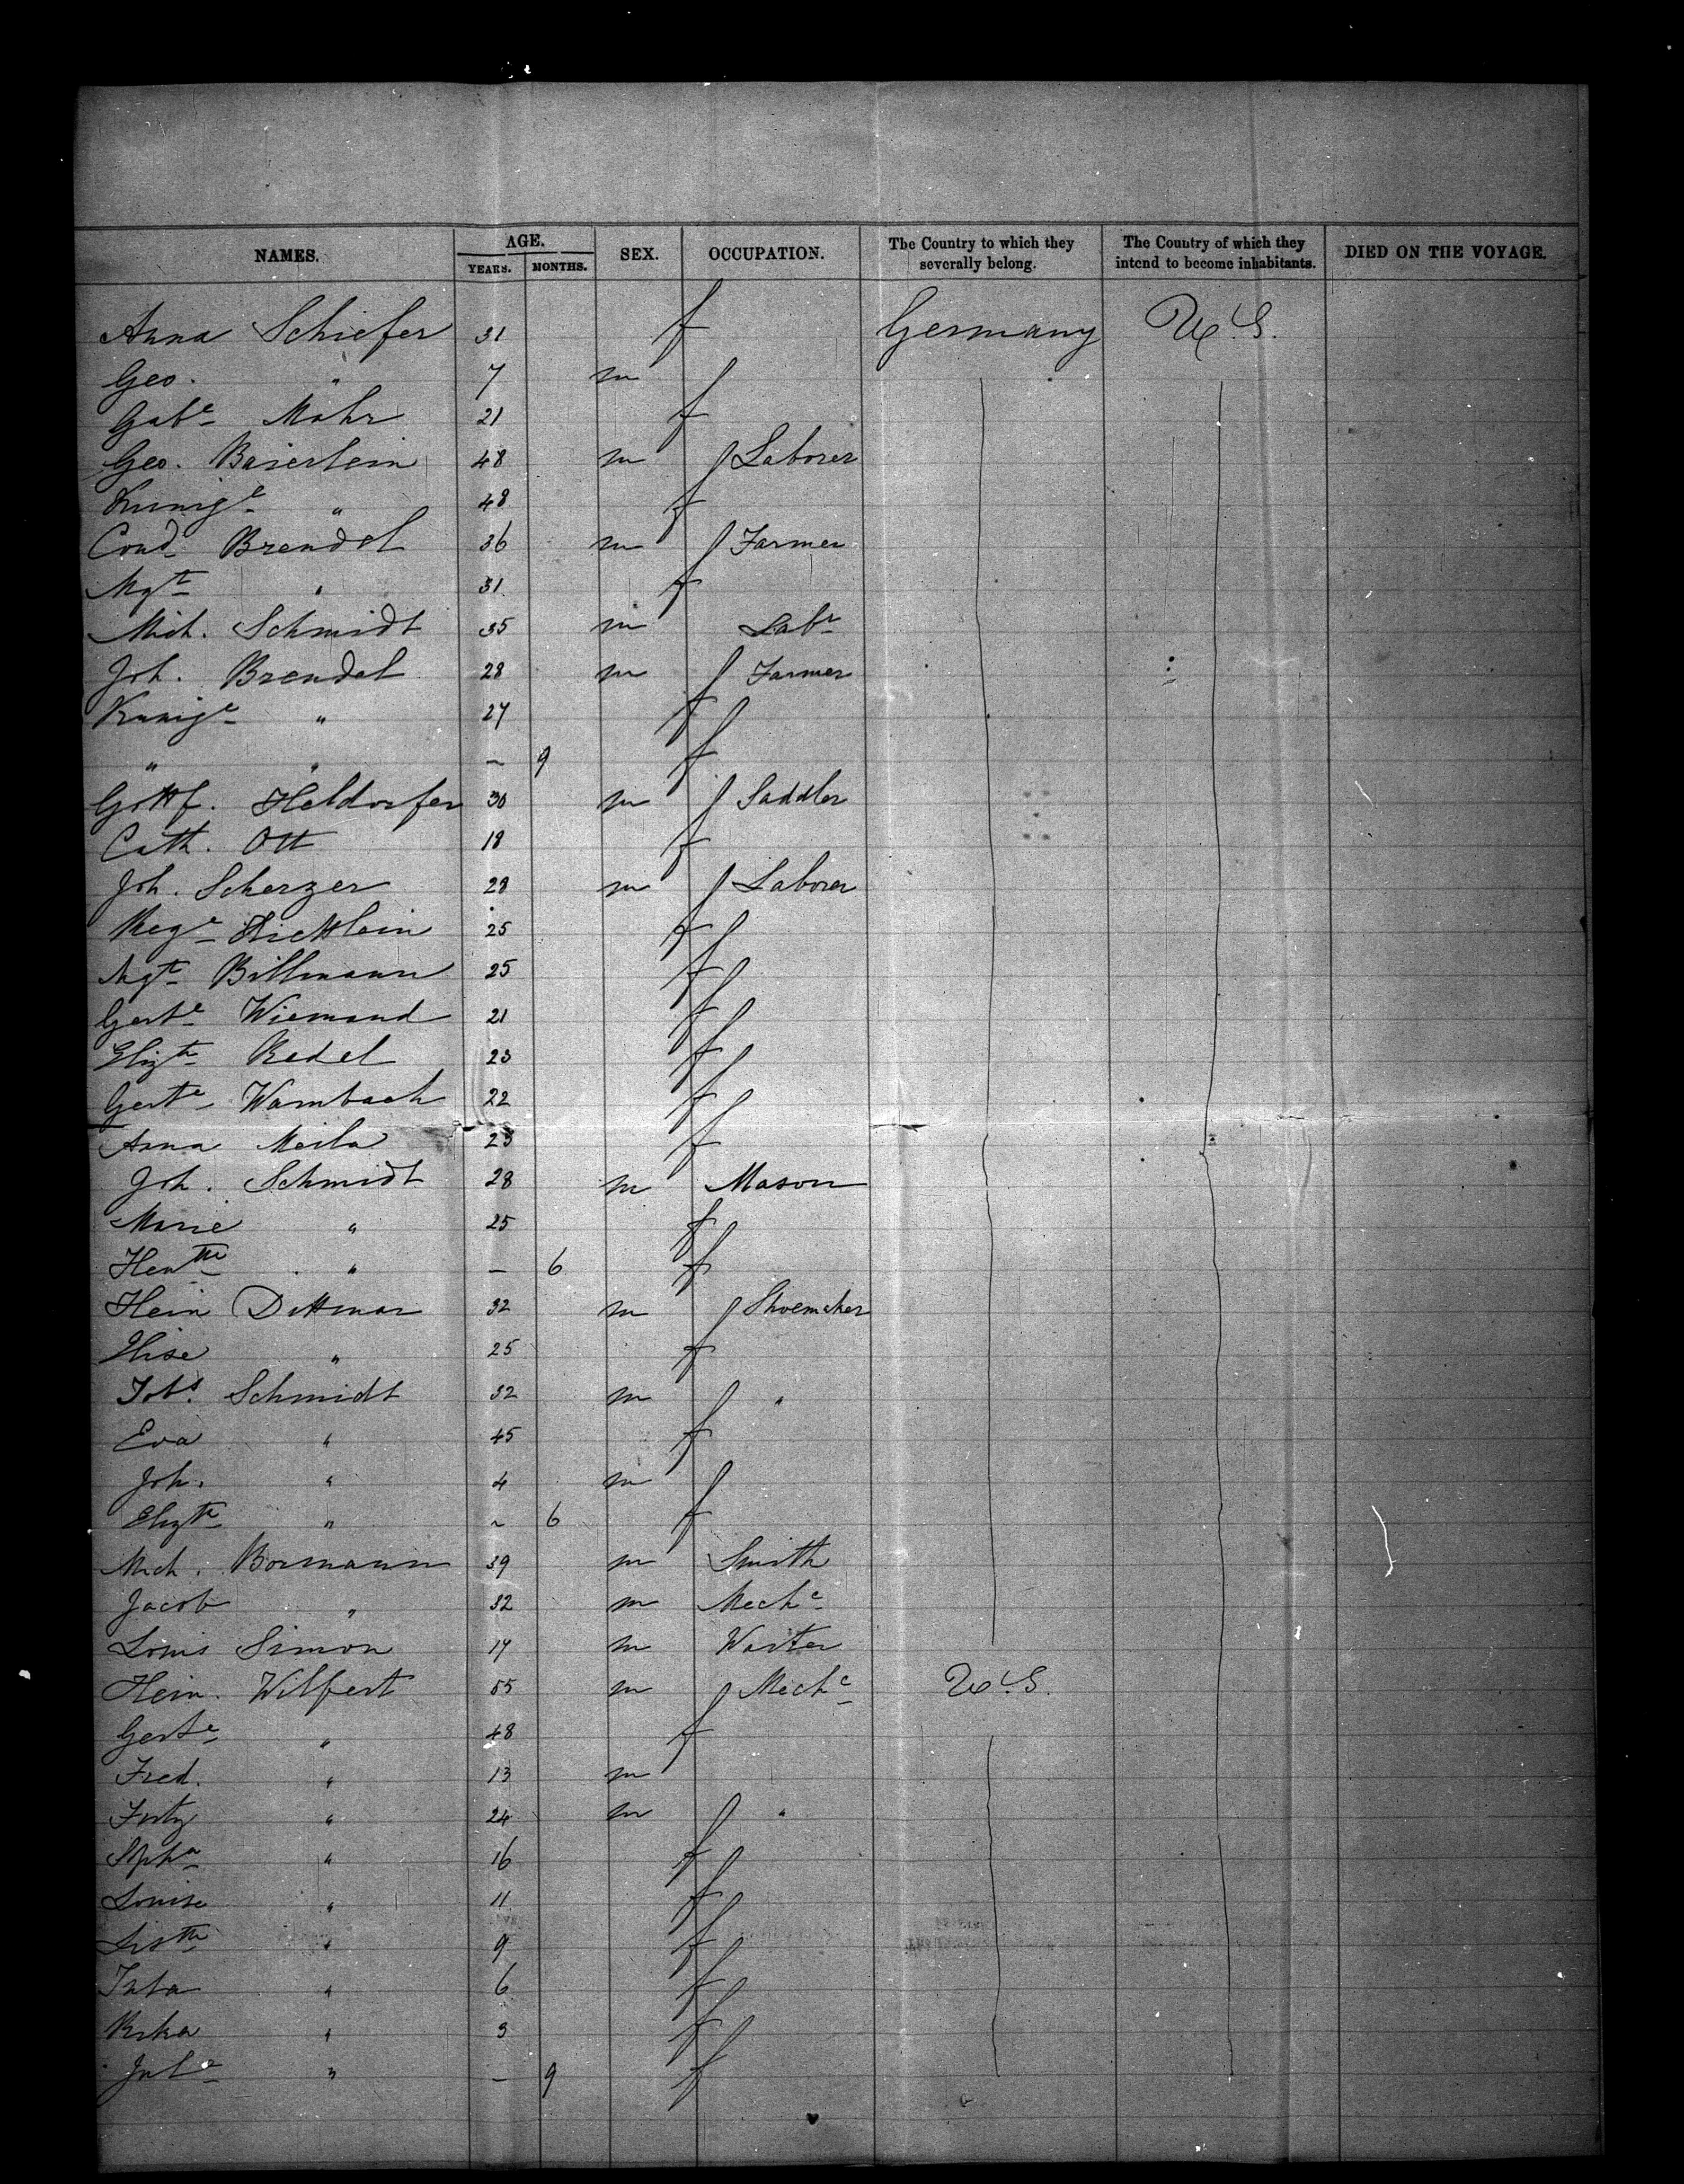 NAMES. AGE. YEARS. MONTHS. SEX. OCCUPATION. The Country to which they severally belong. The Country of which they intend to become inhabitants. DIED ON THE VOYAGE.
Anna Schiefer 31 f Germany U.S.
Geo. " 7 m
Gabe Mohr 21 f
Geo. Baierlein 48 m Laborer
Kunige " 48 f
Cond Brendel 36 m Farmer
Mgte " 31 f
Mich. Schmidt 35 m Labr
Joh. Brendel 28 m Farmer
Kunige " 27 f
" " — 9 f
Gottf. Heldorfer 30 m Saddler
Cath. Ott 18 f
Joh. Scherzer 28 m Laborer
25 f
Mgte Billmann 25 f
Gerte Wiemand 21 f
Elizth Redel 23 f
Gerte Wambach 22 f
Anna Meila 23 f
Joh. Schmidt 28 m Mason
Marie " 25 f
Hentte " — 6 f
Hein Dittmar 32 m Shoemaker
Elise " 25 f
Schmidt 32 m "
Eva " 45 f
Joh. " 4 m
Elizth " — 6 f
Mich. Bormann 39 m Smith
Jacob " 32 m Mechc
Louis Simon 17 m Waiter
Hein. Wilfert 55 m Mechc U.S.
Gerte " 48 f
Fred. " 13 m
Fritz " 24 m "
Spha " 16 f
Louise " 11 f
" 9 f
" 6 f
" 3 f
Jule " — 9 f